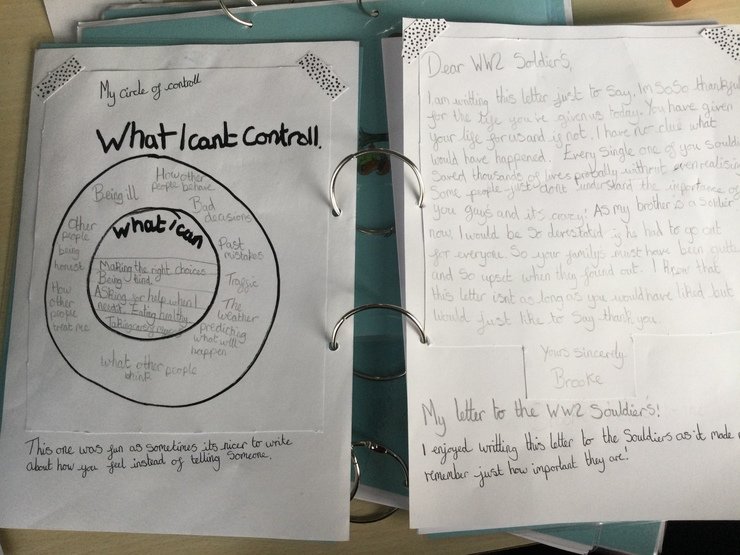 My circle of controll
What I cant Controll.
How other
people behave
Being ill
Bad
decisions
Other
people
being
honest
Past
mistakes
Traffic
How
other
people
treat me
The
weather
predicting
what will
happen
what other people
think
what i can
Making the right choices
Being kind
Asking for help when I
need it. Eating healthy
Taking care
This one was fun as sometimes its nicer to write
about how you feel instead of telling someone.
Dear WW2 Soldiers,
I am writting this letter just to say, Im so so thankful
for the life you've given us today. You have given
your life for us and if not. I have no clue what
would have happened. Every single one of you
saved thousands of lives probally without even realising
Some people just dont understand the importance of
you guys and its crazy! As my brother is a
now, I would be so if he had to go out
for everyone. So your family's must have been quite
and so upset when they found out. I know that
this letter isnt as long as you would have liked but
Would just like to say thank you.
Yours sincerely
Brooke
My letter to the WW2 Souldier's!
I enjoyed writting this letter to the Souldiers as it made
remember just how important they are!